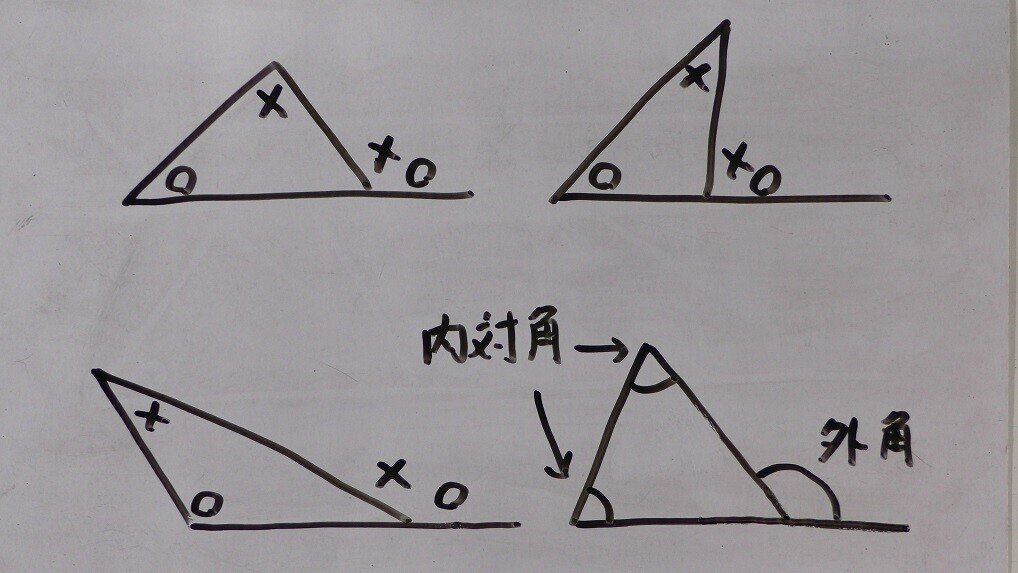 × × × ○ ○ × ○ ○
× × ○ ○
内対角
外角